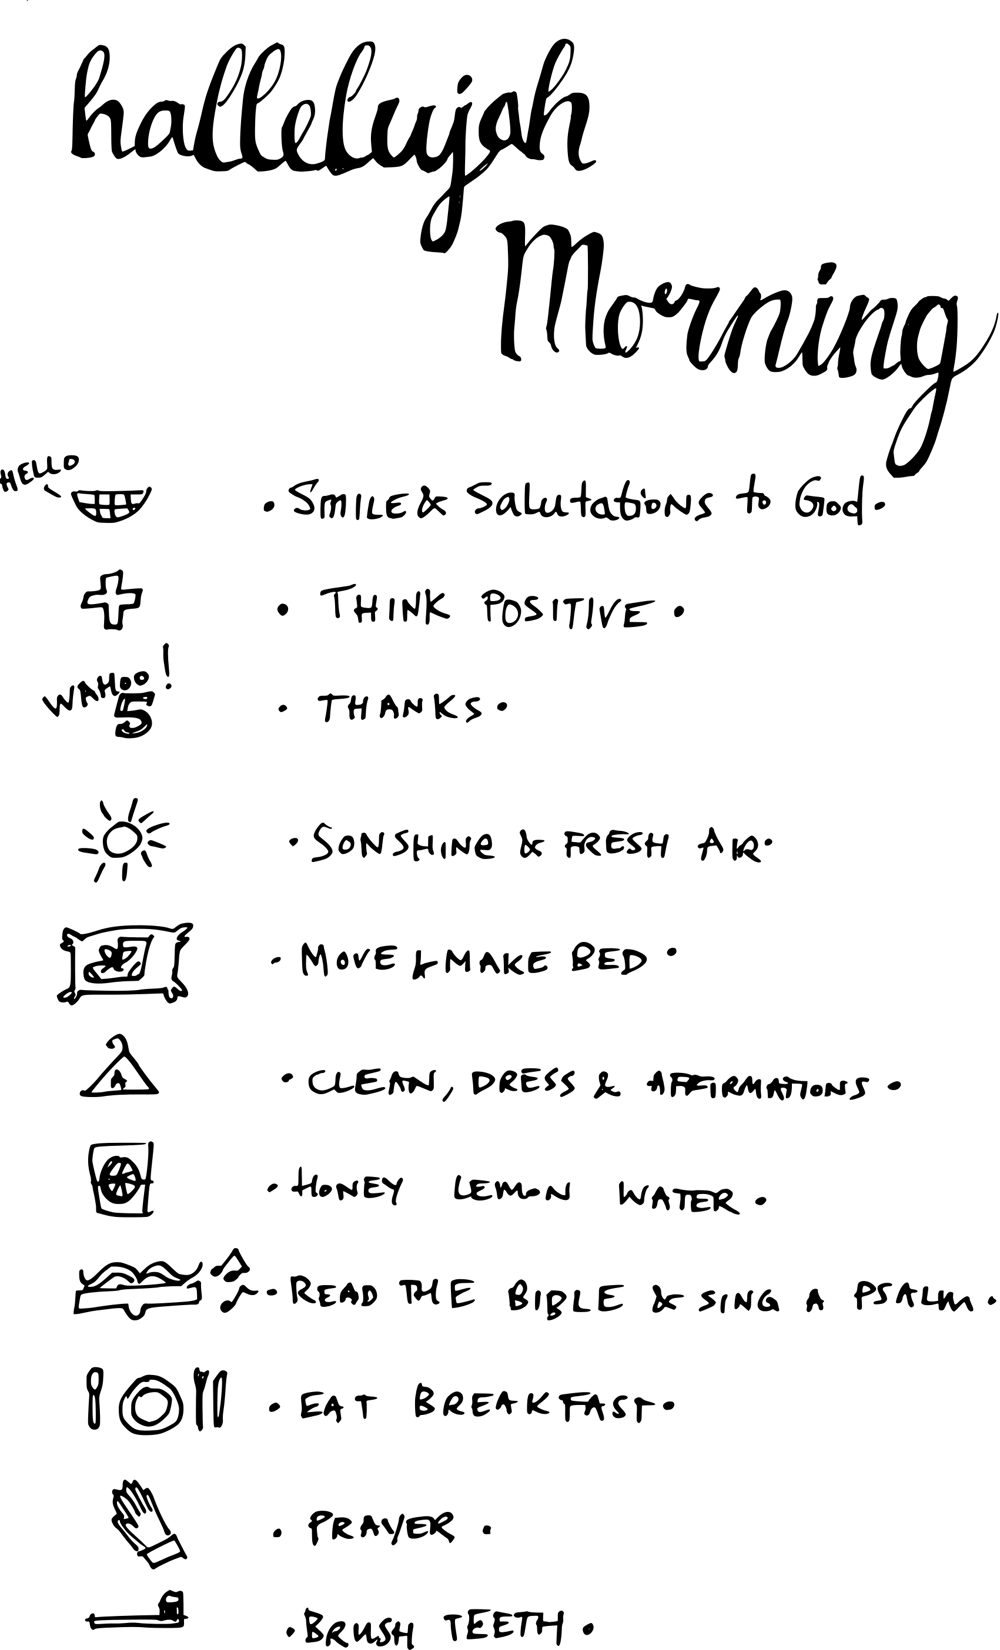 hallelujah
Morning
HELLO
• SMILE & Salutations to God •
• THINK POSITIVE •
WAHOO!
5
• THANKS •
• SONSHINe & FRESH AIR •
• MOVE & MAKE BED •
A
• CLEAN, DRESS & AFFIRMATIONS •
• HONEY LEMON WATER •
• READ THE BIBLE & SING A PSALM •
• EAT BREAKFAST •
• PRAYER •
• BRUSH TEETH •